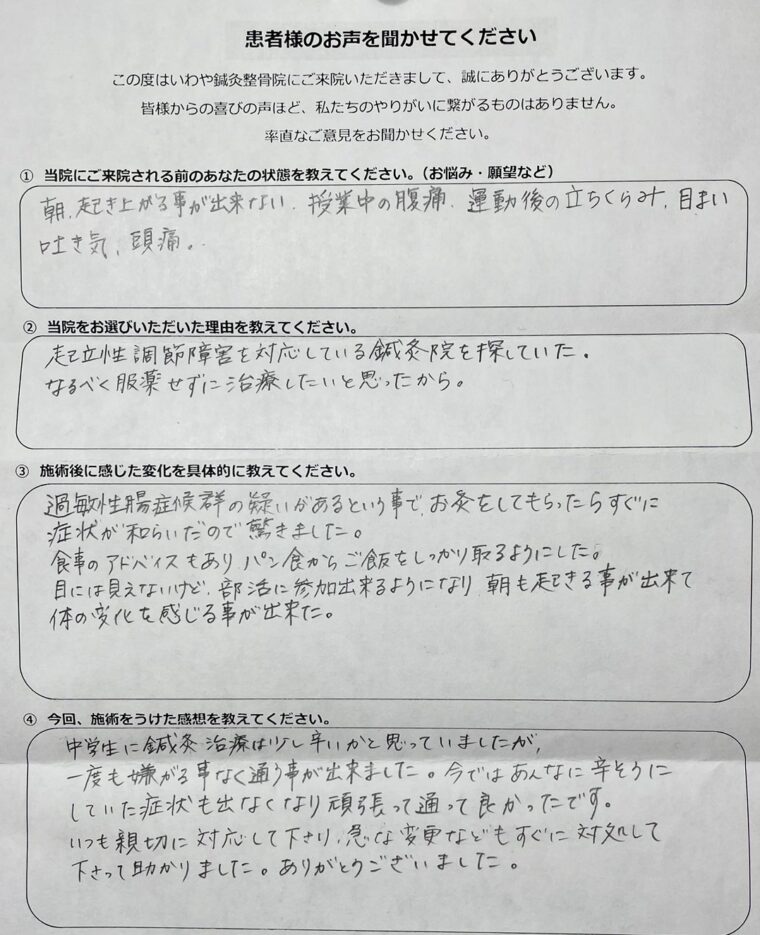 患者様のお声を聞かせてください
この度はいわや鍼灸整骨院にご来院いただきまして、誠にありがとうございます。
皆様からの喜びの声ほど、私たちのやりがいに繋がるものはありません。
率直なご意見をお聞かせください。
① 当院にご来院される前のあなたの状態を教えてください。（お悩み・願望など）
朝、起き上がる事が出来ない、授業中の腹痛、運動後の立ちくらみ、目まい
吐き気、頭痛。
② 当院をお選びいただいた理由を教えてください。
起立性調節障害を対応している鍼灸院を探していた。
なるべく服薬せずに治療したいと思ったから。
③ 施術後に感じた変化を具体的に教えてください。
過敏性腸症候群の疑いがあるという事で、お灸をしてもらったらすぐに
症状が和らいだので驚きました。
食事のアドバイスもあり、パン食からご飯をしっかり取るようにした。
目には見えないけど、部活に参加出来るようになり、朝も起きる事が出来て
体の変化を感じる事が出来た。
④ 今回、施術をうけた感想を教えてください。
中学生に鍼灸治療は少し辛いかと思っていましたが、
一度も嫌がる事なく通う事が出来ました。今ではあんなに辛そうに
していた症状も出なくなり頑張って通って良かったです。
いつも親切に対応して下さり、急な変更などもすぐに対処して
下さって助かりました。ありがとうございました。